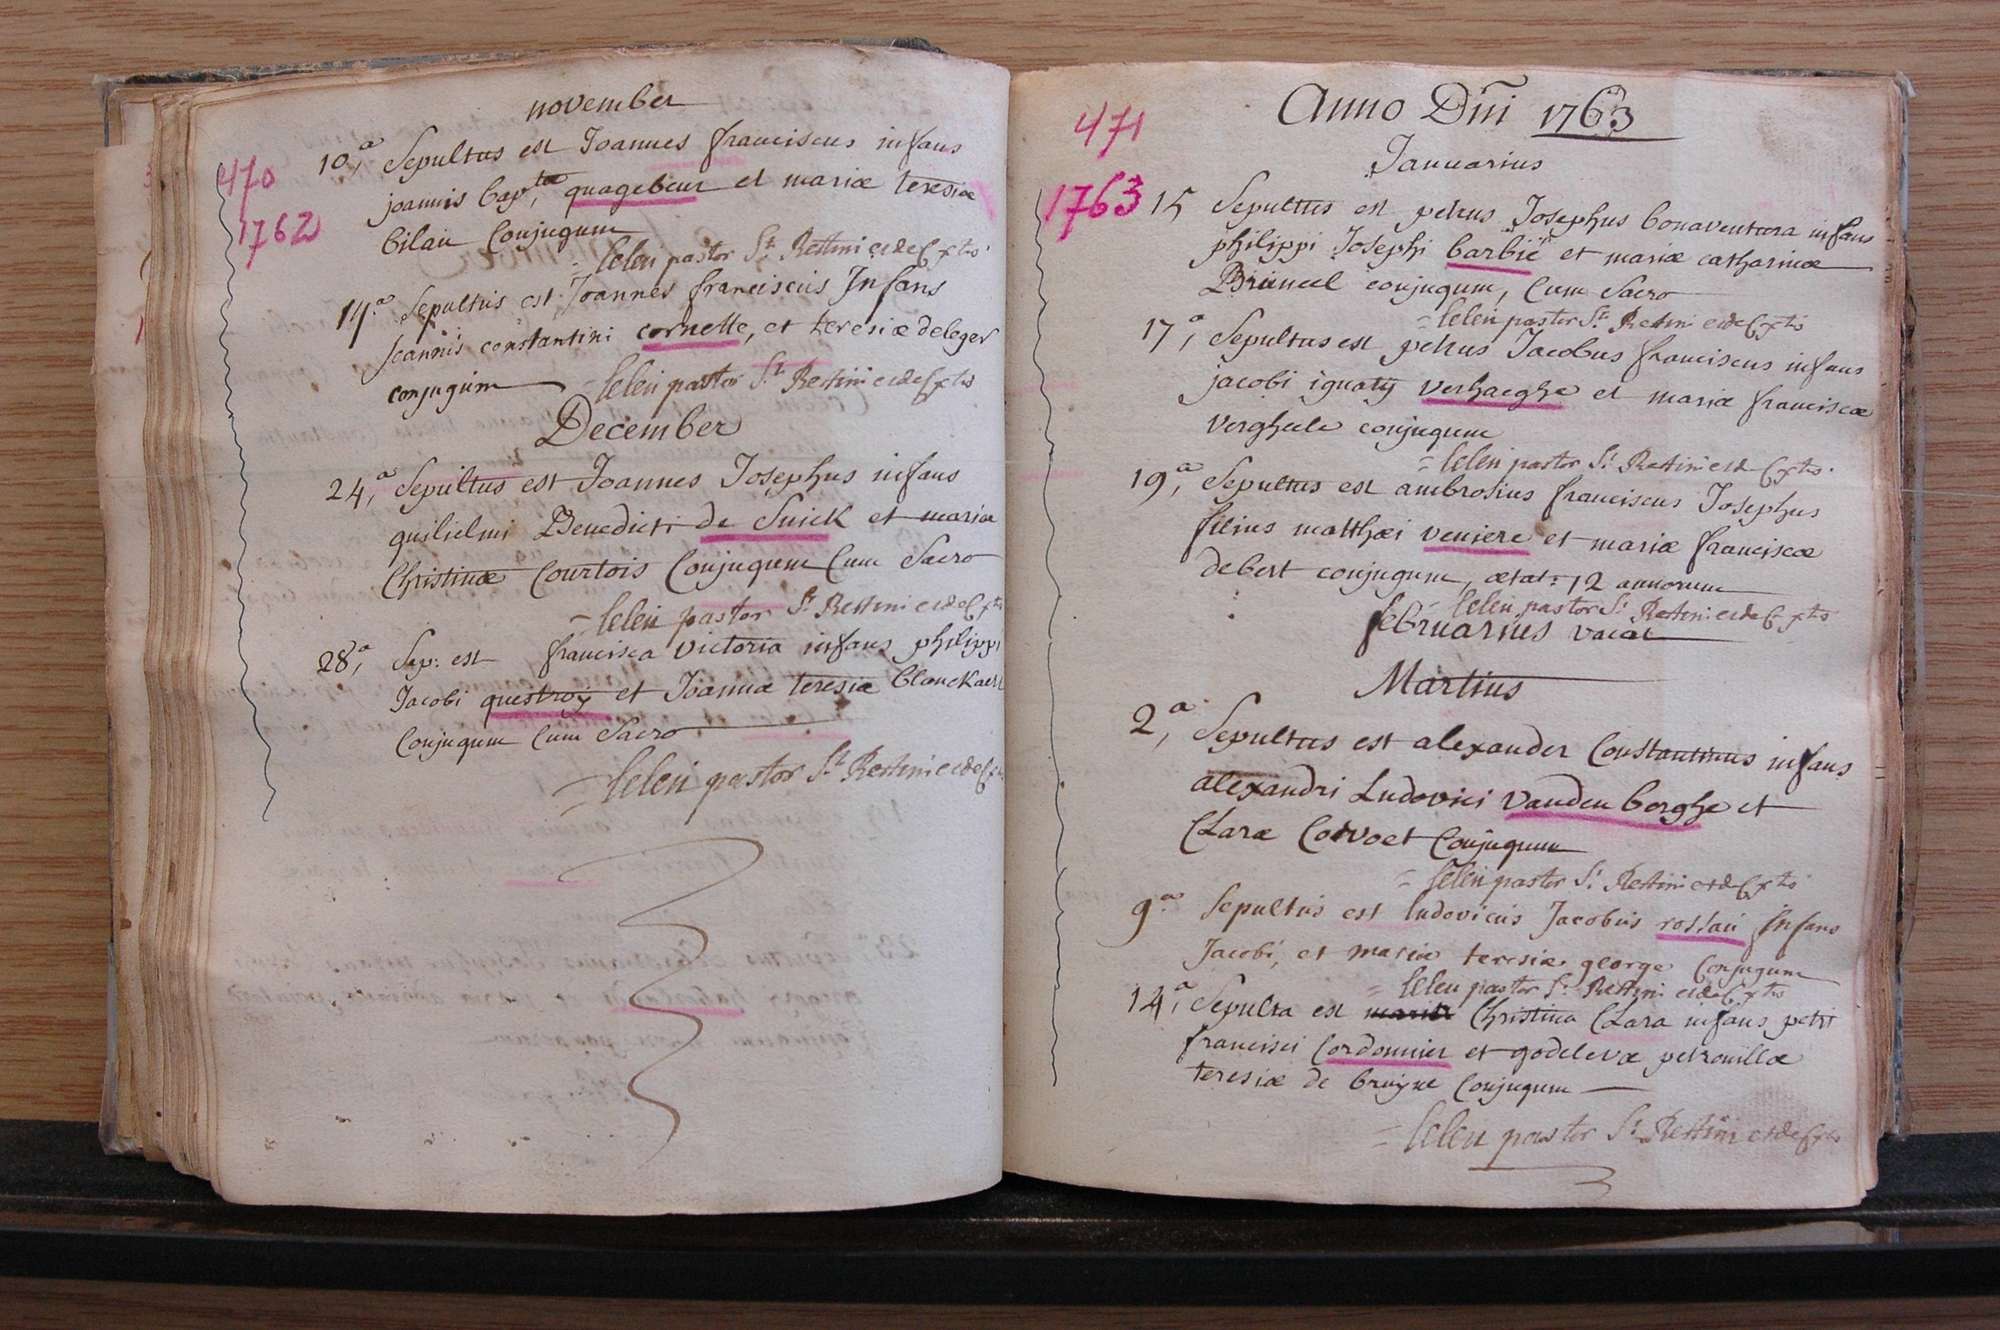 november
470
1762
10,a Sepultus est Joannes franciscus infans
joannis bapt,tæ quagebeur et mariæ teresiæ
bilau Conjugum
= lelen pastor St. Restini et de C xtis
14.a Sepultus est Joannes franciscus Infans
Joannis constantini cornette, et teresiæ deleger
conjugum = lelen pastor St. Restini et de C xtis
December
24,a Sepultus est Joannes Josephus infans
guilielmi Benedicti de Snick et mariæ
Christinæ Courtois Conjugum Cum Sacro
= lelen pastor St. Restini et de C xtis
28,a Sep: est francisca victoria infans philippi
Jacobi questroy et Joannæ teresiæ blanckaert
Conjugum Cum Sacro
= lelen pastor St. Restini et de C
Anno Dñi 1763
471
1763
Januarius
15 Sepultus est petrus Josephus bonaventura infans
philippi Josephi barbié et mariæ catharinæ
Bruneel conjugum, Cum Sacro
= lelen pastor St. Restini et de C xtis
17,a Sepultus est petrus Jacobus franciscus infans
jacobi ignatij verhaeghe et mariæ franciscæ
vergheele conjugum
= lelen pastor St. Restini et de C xtis
19,a Sepultus est ambrosius franciscus Josephus
filius matthæi veniere et mariæ franciscæ
debert conjugum, ætat: 12 annorum
= lelen pastor St. Restini et de C xtis
februarius vacat
Martius
2,a Sepultus est alexander Constantinus infans
alexandri Ludovici vanden berghe et
Claræ Cotvoet Conjugum
= lelen pastor St. Restini et de C xtis
9.a Sepultus est ludovicus Jacobus rossau Infans
Jacobi, et mariæ teresiæ george Conjugum
= lelen pastor St. Restini et de C xtis
14,a Sepulta est Christina Clara infans petri
francisci Cordonnier et godelevæ petronillæ
teresiæ de bruyne Conjugum
= lelen pastor St. Restini et de C xtis